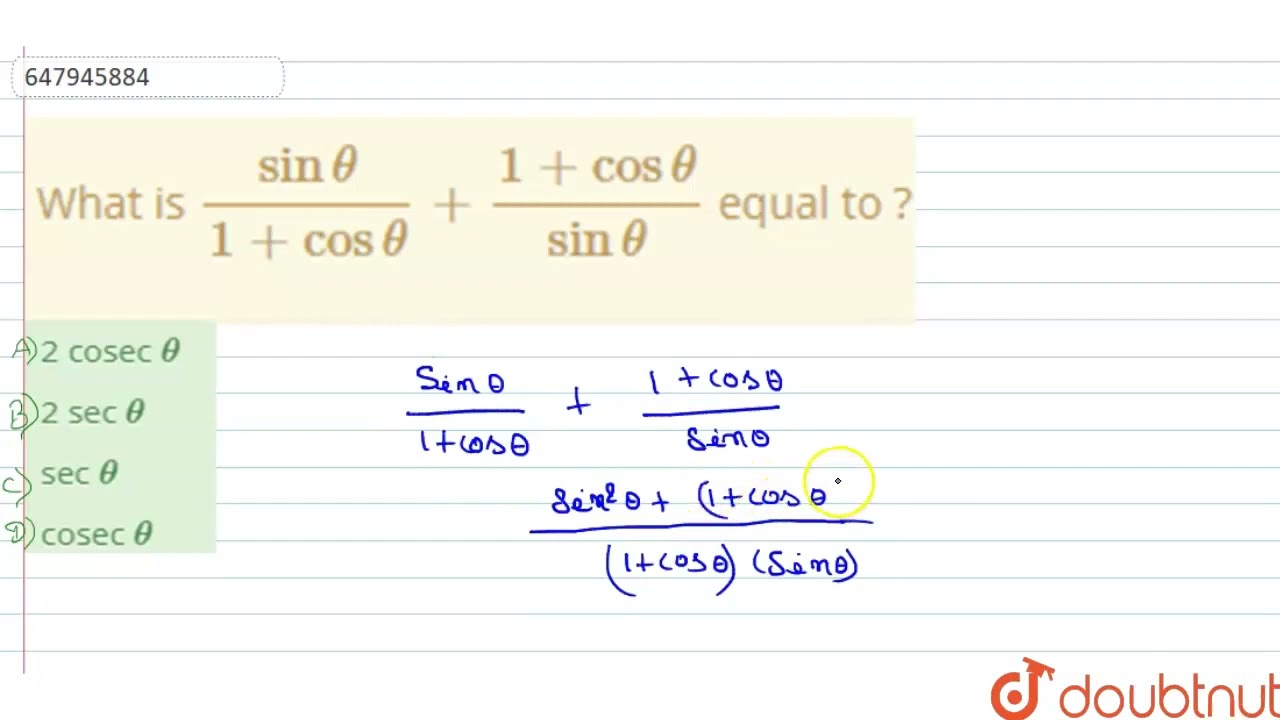 647945884
What is \frac{\sin\theta}{1 + \cos\theta} + \frac{1 + \cos\theta}{\sin\theta} equal to ?
A) 2 cosec θ
B) 2 sec θ
C) sec θ
D) cosec θ
\frac{Sin θ}{1+cos θ} + \frac{1+cos θ}{sin θ}
\frac{sin² θ + (1+cos θ}{(1+cos θ) (sin θ)}
doubtnut